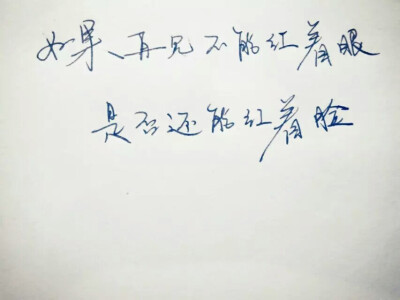 如果、再见不能红着眼
是否还能红着脸